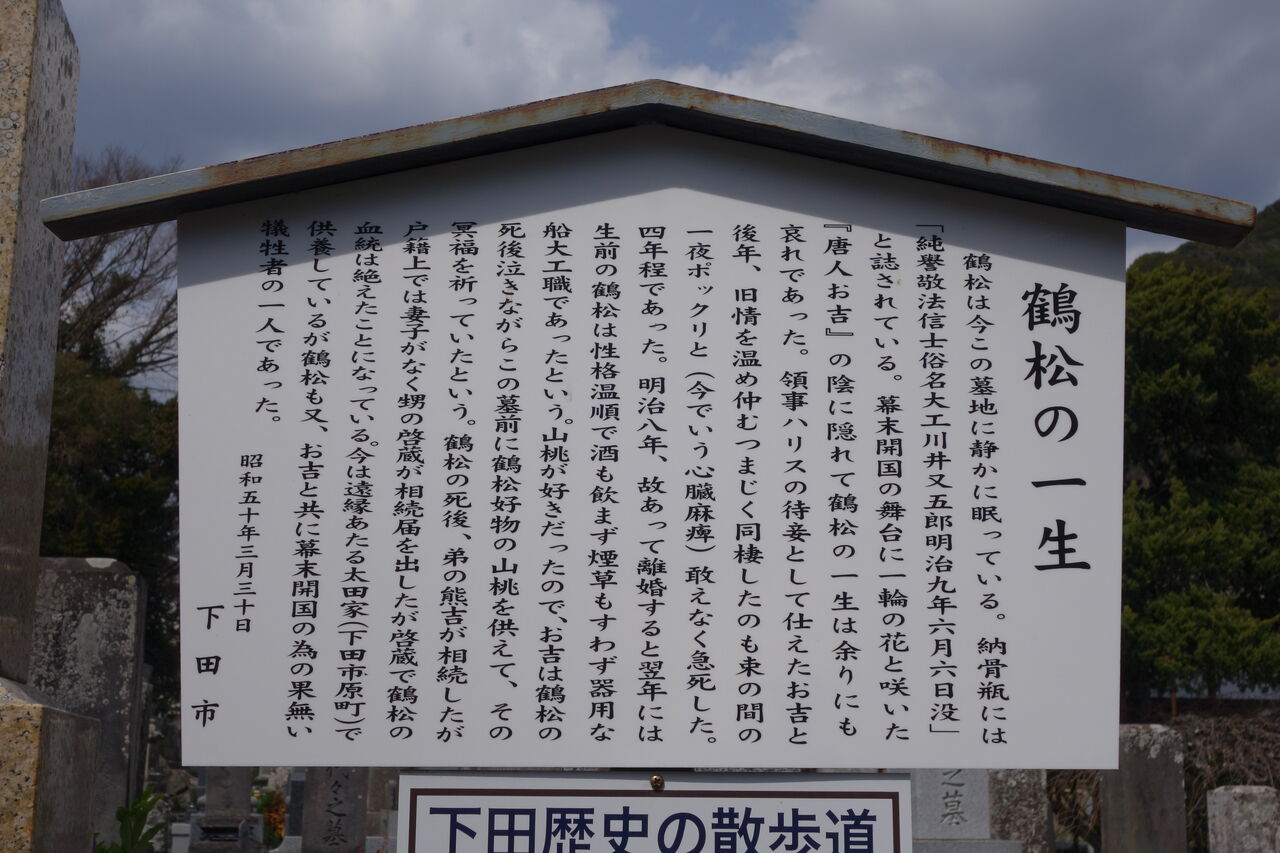 鶴松の一生
鶴松は今この墓地に静かに眠っている。納骨瓶には
「純誉敬法信士俗名大工川井又五郎明治九年六月六日没」
と誌されている。幕末開国の舞台に一輪の花と咲いた
『唐人お吉』の陰に隠れて鶴松の一生は余りにも
哀れであった。領事ハリスの待妾として仕えたお吉と
後年、旧情を温め仲むつまじく同棲したのも束の間の
四年程であった。明治八年、故あって離婚すると翌年には
一夜ポックリと(今でいう心臓麻痺)敢えなく急死した。
生前の鶴松は性格温順で酒も飲まず煙草もすわず器用な
船大工職であったという。山桃が好きだったので、お吉は鶴松の
死後泣きながらこの墓前に鶴松好物の山桃を供えて、その
冥福を祈っていたという。鶴松の死後、弟の熊吉が相続したが
戸籍上では妻子がなく甥の啓蔵が相続届を出したが啓蔵で鶴松の
血統は絶えたことになっている。今は遠縁あたる太田家(下田市原町)で
供養しているが鶴松も又、お吉と共に幕末開国の為の果無い
犠牲者の一人であった。
昭和五十年三月三十日
下田市
下田歴史の散歩道
代々之墓
之墓